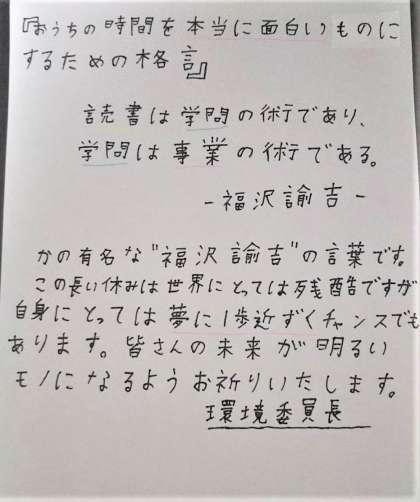 『おうちの時間を本当に面白いものに
するための格言』
読書は学問の術であり、
学問は専業の術である。
-福沢諭吉-
かの有名な"福沢諭吉"の言葉です。
この長い休みは世界にとっては残酷ですが
自身にとっては夢に1歩近ずくチャンスでも
あります。皆さんの未来が明るい
モノになるようお祈りいたします。
環境委員長